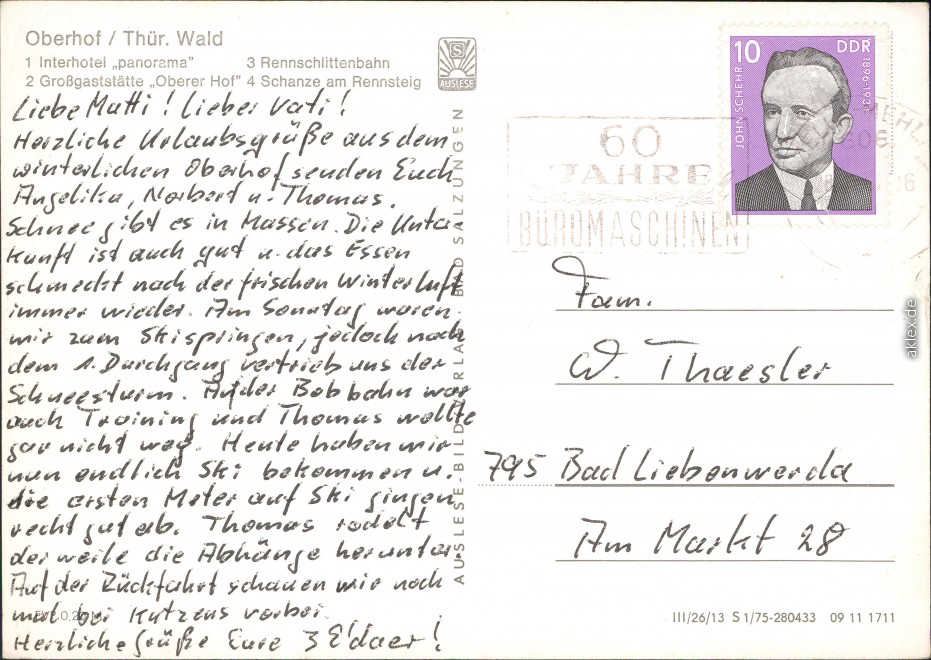 Oberhof / Thür. Wald
1 Interhotel „panorama" 3 Rennschlittenbahn
2 Großgaststätte „Oberer Hof" 4 Schanze am Rennsteig
S
AUSLESE
Liebe Mutti! Lieber Vati!
Herzliche Urlaubsgrüße aus dem
winterlichen Oberhof senden Euch
Angelika, Norbert u. Thomas.
Schnee gibt es in Massen. Die Unter-
kunft ist auch gut u. das Essen
schmeckt nach der frischen Winterluft
immer wieder. Am Sonntag waren
wir zum Skispringen, jedoch nach
dem 1. Durchgang vertrieb uns der
Schneesturm. Auf der Bobbahn war
auch Training und Thomas wollte
gar nicht weg. Heute haben wir
nun endlich Ski bekommen u.
die ersten Meter auf Ski gingen
recht gut ab. Thomas rodelt
derweile die Abhänge herunter.
Auf der Rückfahrt schauen wir noch
mal bei Kutzens vorbei.
Herzliche Grüße Eure 3
AUSLESE-BILD-VERLAG BAD SALZUNGEN
60
JAHRE
BÜROMASCHINEN
10 DDR
JOHN SCHEHR
1896-1934
Fam.
W. Thaesler
795 Bad Liebenwerda
Am Markt 28
III/26/13 S 1/75-280433 09 11 1711
aklex.de